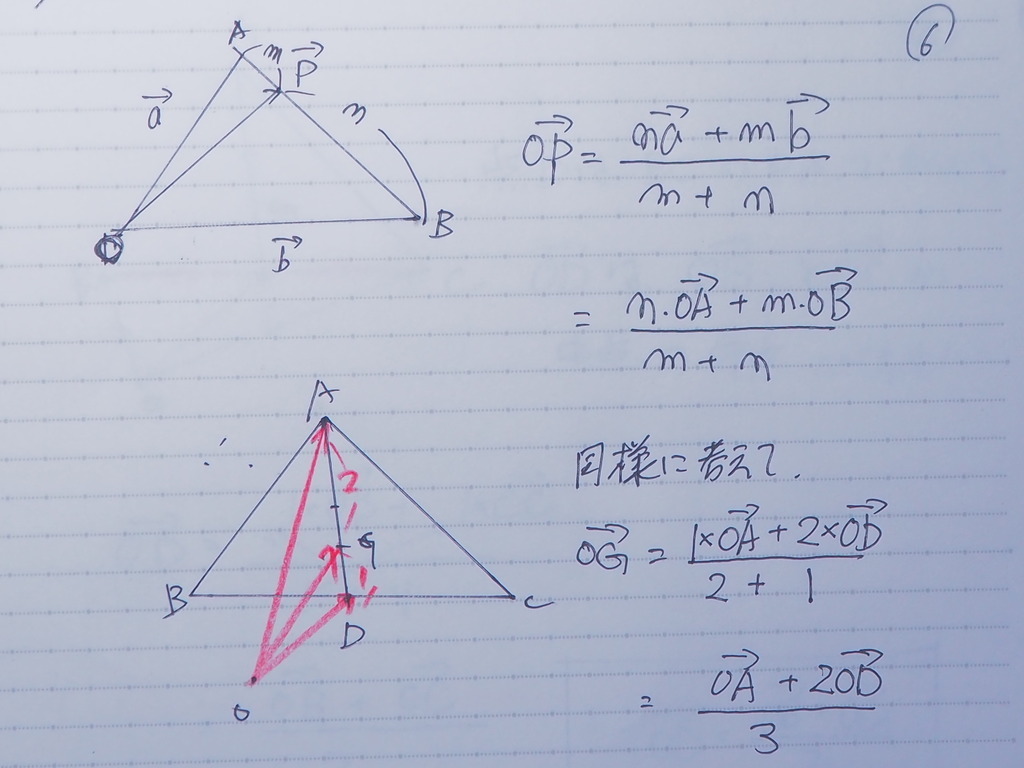 ⑥
A
m
P→
a→
n
B
b→
O
OP→ = (na→ + mb→) / (m + n)
= (n·OA→ + m·OB→) / (m + n)
A
∴
2
1
G
1
B
D
C
O
同様に考えて.
OG→ = (1×OA→ + 2×OD→) / (2 + 1)
= (OA→ + 2OD→) / 3